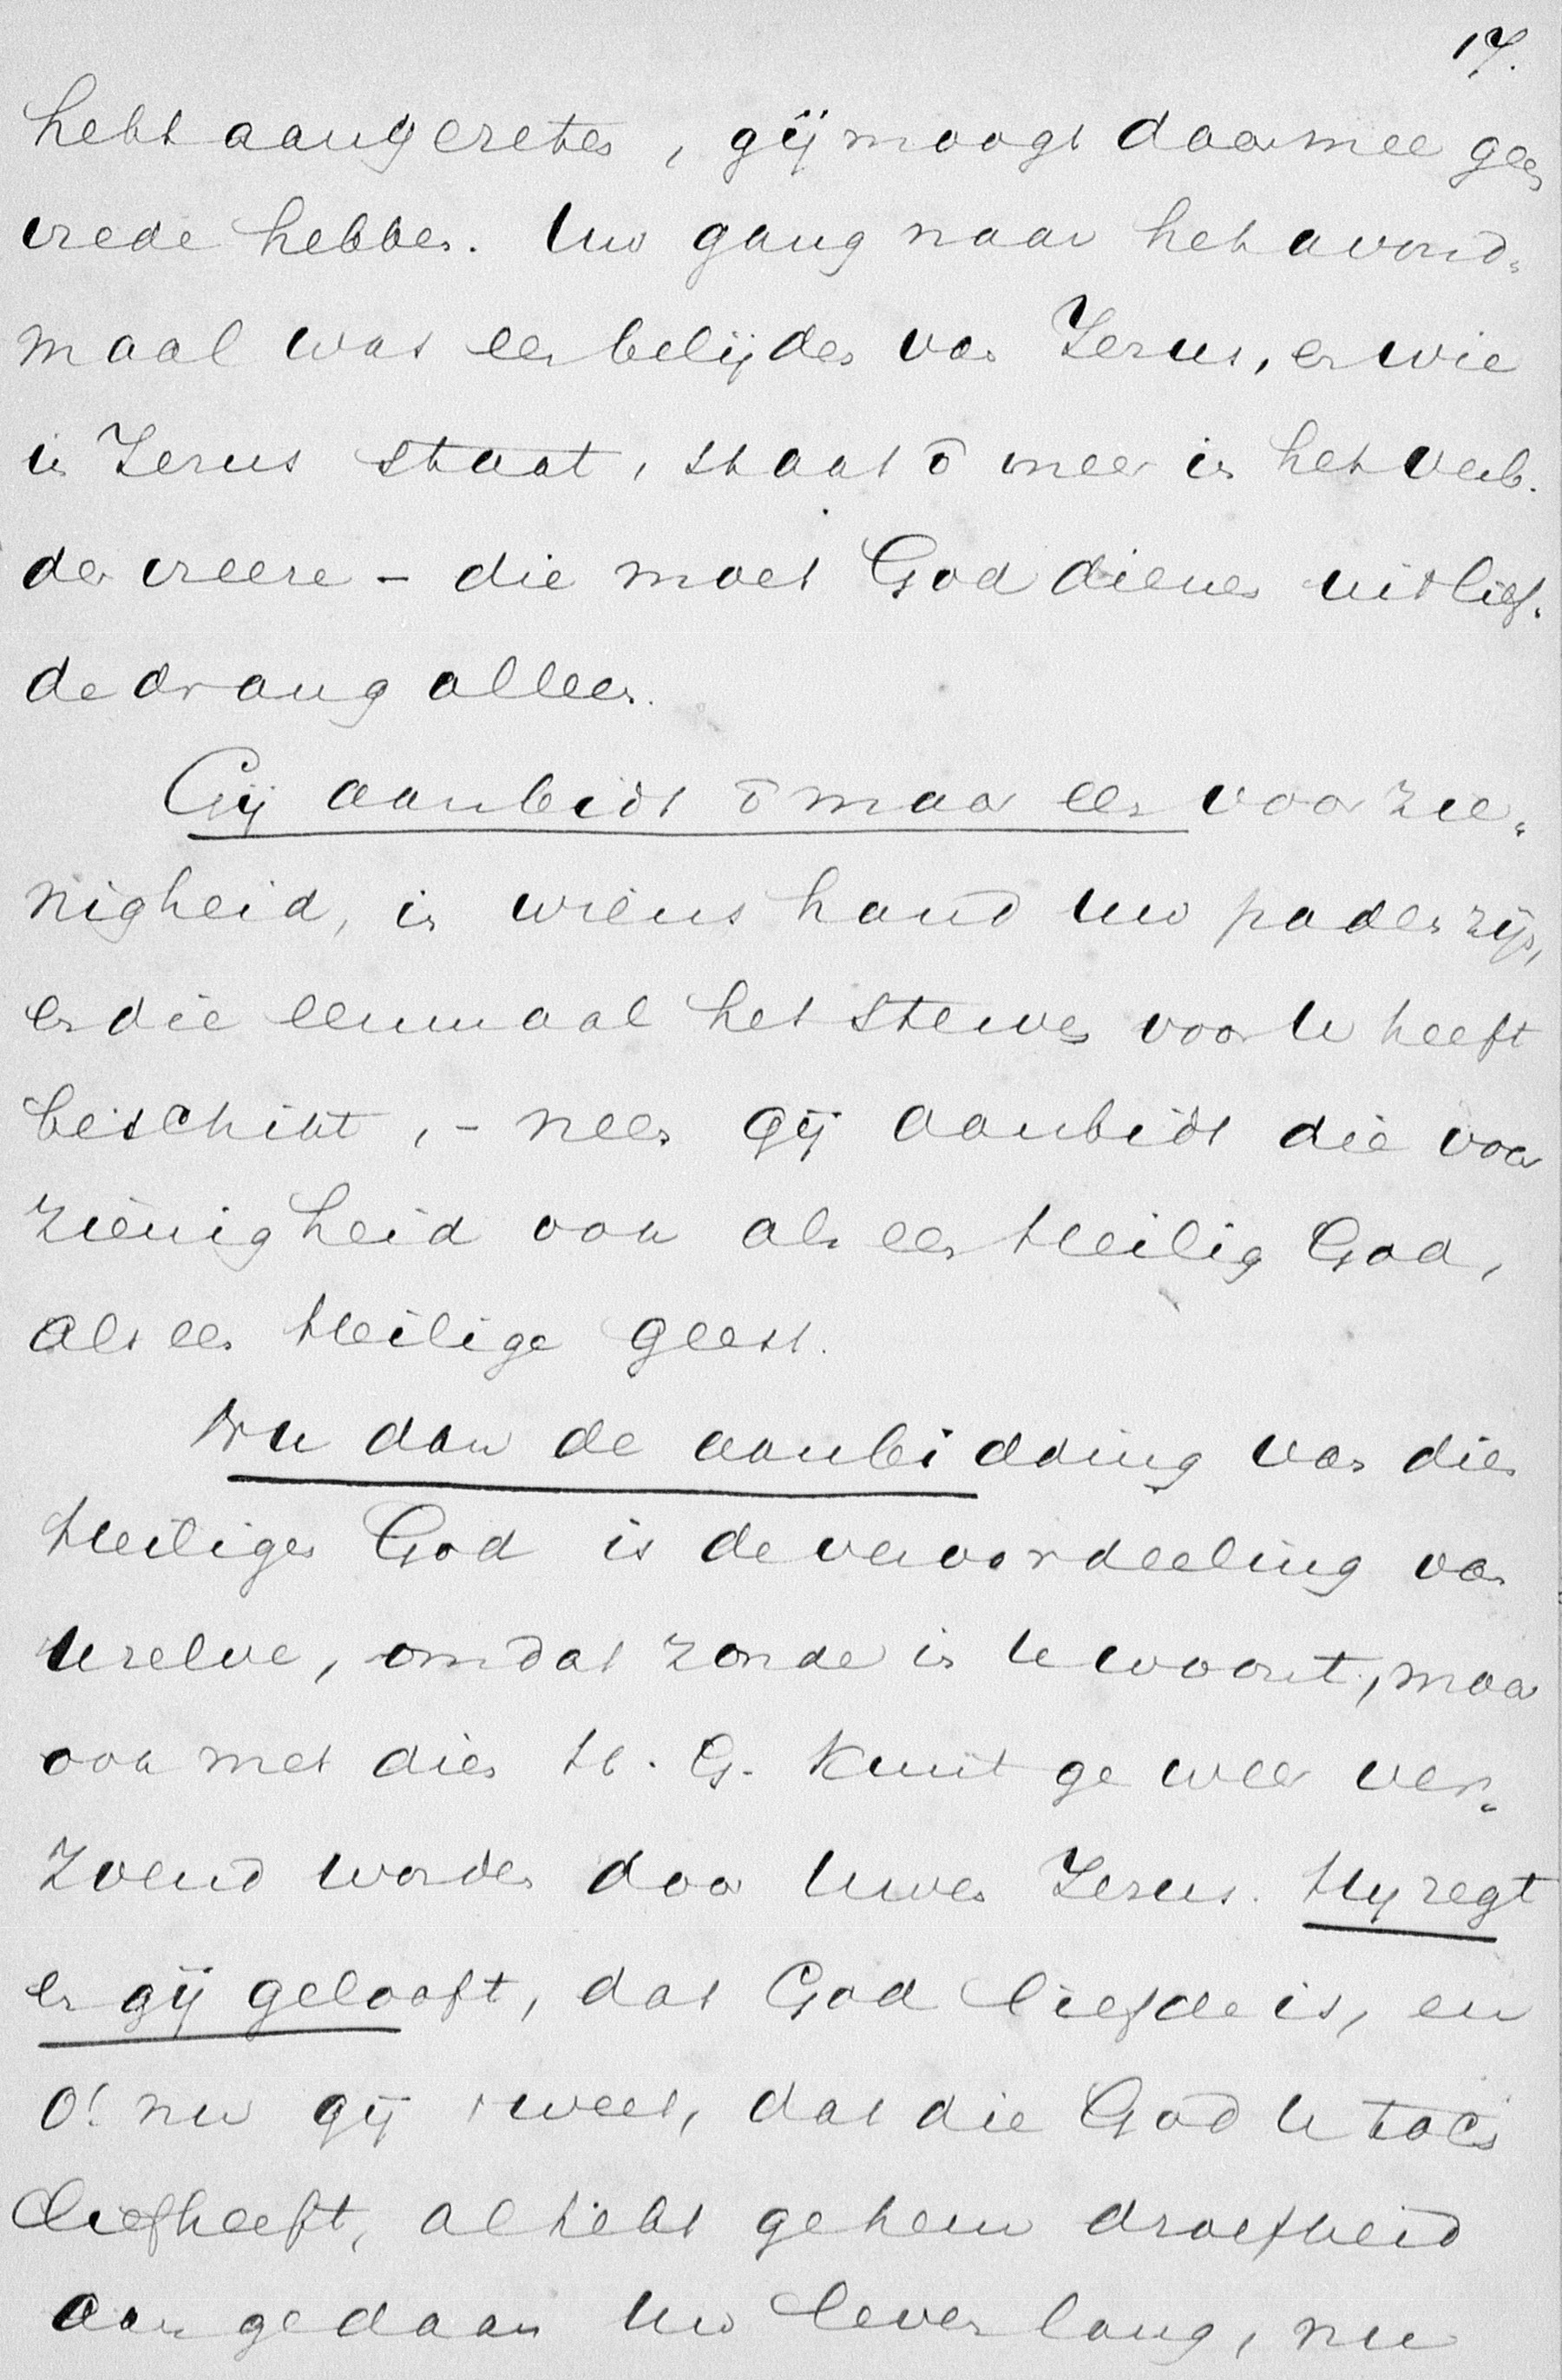 17.
hebt aangezeten, gij moogt daarmee geen
vrede hebben. Uw gang naar het avond-
maal was een belijden van Jezus, en wie
in Jezus staat, staat ō meer in het verb.
der vreeze - die moet God dienen uit lief-
dedrang alleen.
Gij aanbidt ō maar een voorzie-
nigheid, in wiens hand uw paden zijn,
en die eenmaal het sterven voor U heeft
beschikt, - neen gij aanbidt die voor
zienigheid ook als een Heilig God,
als een Heilige geest.
Nu dan de aanbidding van dien
Heiligen God is de veroordeeling van
Uzelve, omdat zonde in U woont, maar
ook met dien H. G. kunt ge weer ver-
zoend worden door Uwen Jezus. Hij zegt
en gij gelooft, dat God liefde is, en
O! nu gij 't weet, dat die God U toch
liefheeft, al hebt ge hem droefheid
aangedaan Uw leven lang, nu